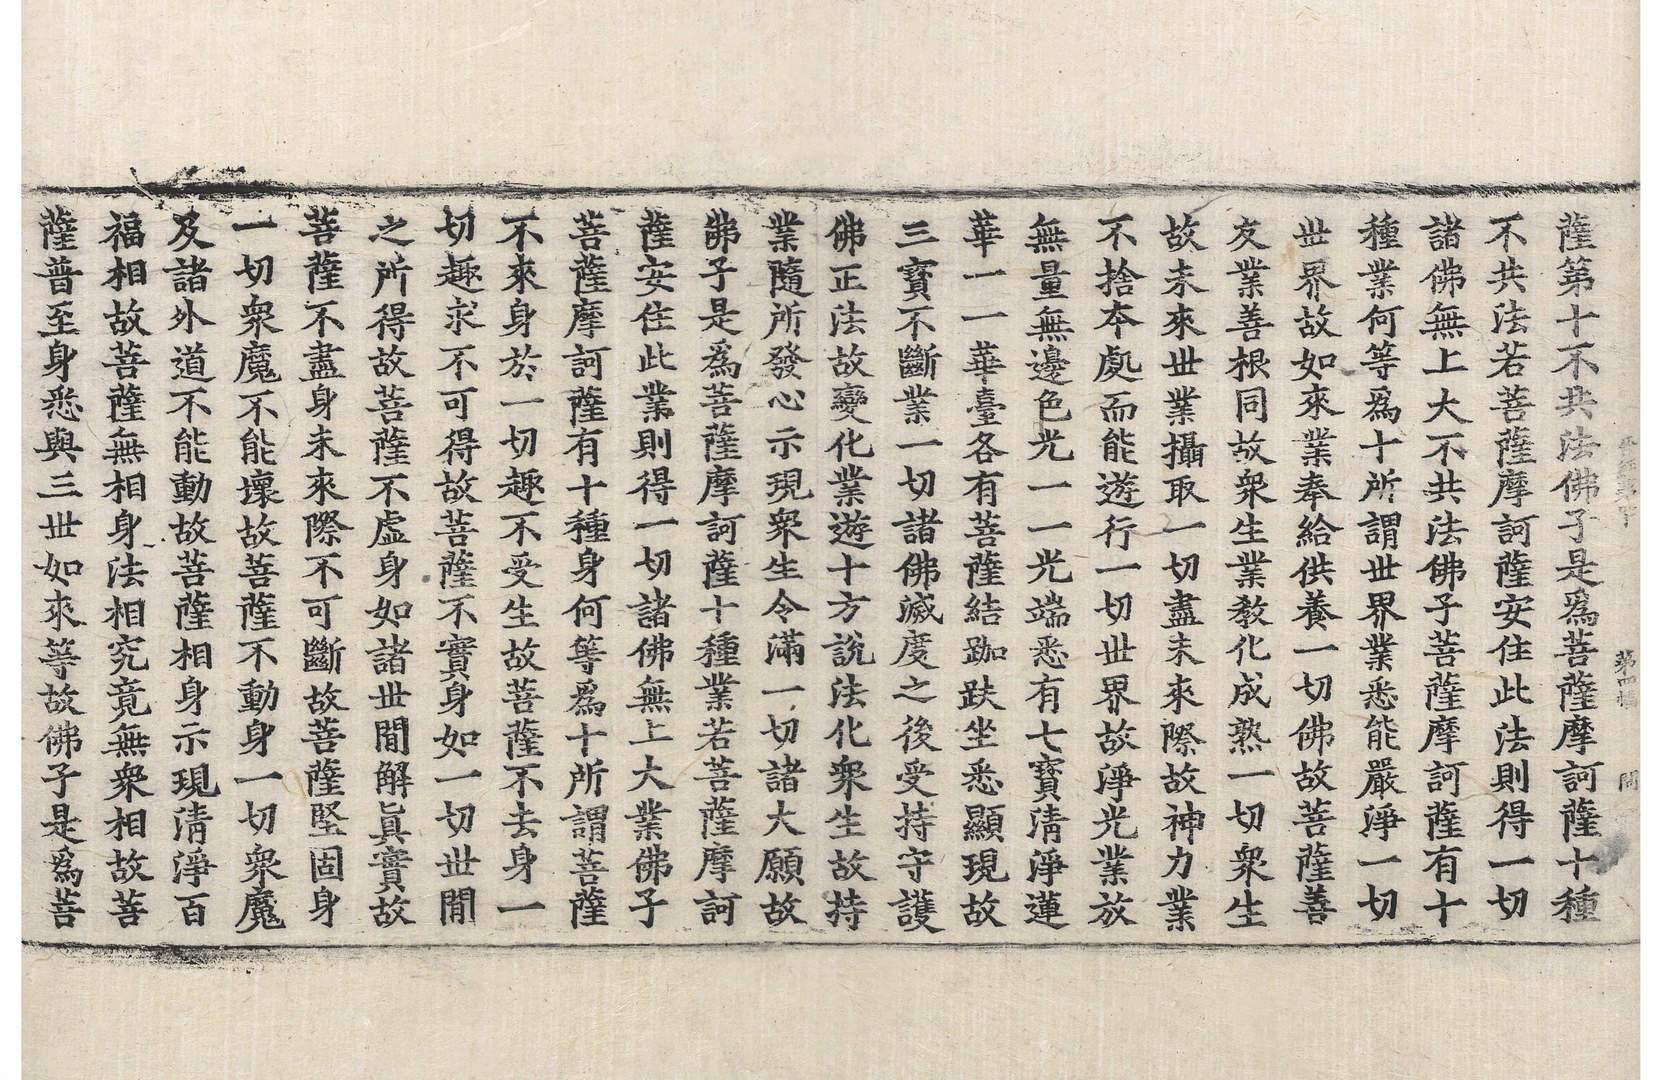 薩第十不共法佛子是爲菩薩摩訶薩十種
不共法若菩薩摩訶薩安住此法則得一切
諸佛無上大不共法佛子菩薩摩訶薩有十
種業何等爲十所謂世界業悉能嚴淨一切
世界故如來業奉給供養一切佛故菩薩善
友業善根同故衆生業教化成熟一切衆生
故未來世業攝取一切盡未來際故神力業
不捨本處而能遊行一切世界故淨光業放
無量無邊色光一一光端悉有七寶清淨蓮
華一一華臺各有菩薩結跏趺坐悉顯現故
三寶不斷業一切諸佛滅度之後受持守護
佛正法故變化業遊十方說法化衆生故持
業隨所發心示現衆生令滿一切諸大願故
佛子是爲菩薩摩訶薩十種業若菩薩摩訶
薩安住此業則得一切諸佛無上大業佛子
菩薩摩訶薩有十種身何等爲十所謂菩薩
不來身於一切趣不受生故菩薩不去身一
切趣求不可得故菩薩不實身如一切世間
之所得故菩薩不虛身如諸世間解眞實故
菩薩不盡身未來際不可斷故菩薩堅固身
一切衆魔不能壞故菩薩不動身一切衆魔
及諸外道不能動故菩薩相身示現清淨百
福相故菩薩無相身法相究竟無衆相故菩
薩普至身悉與三世如來等故佛子是爲菩